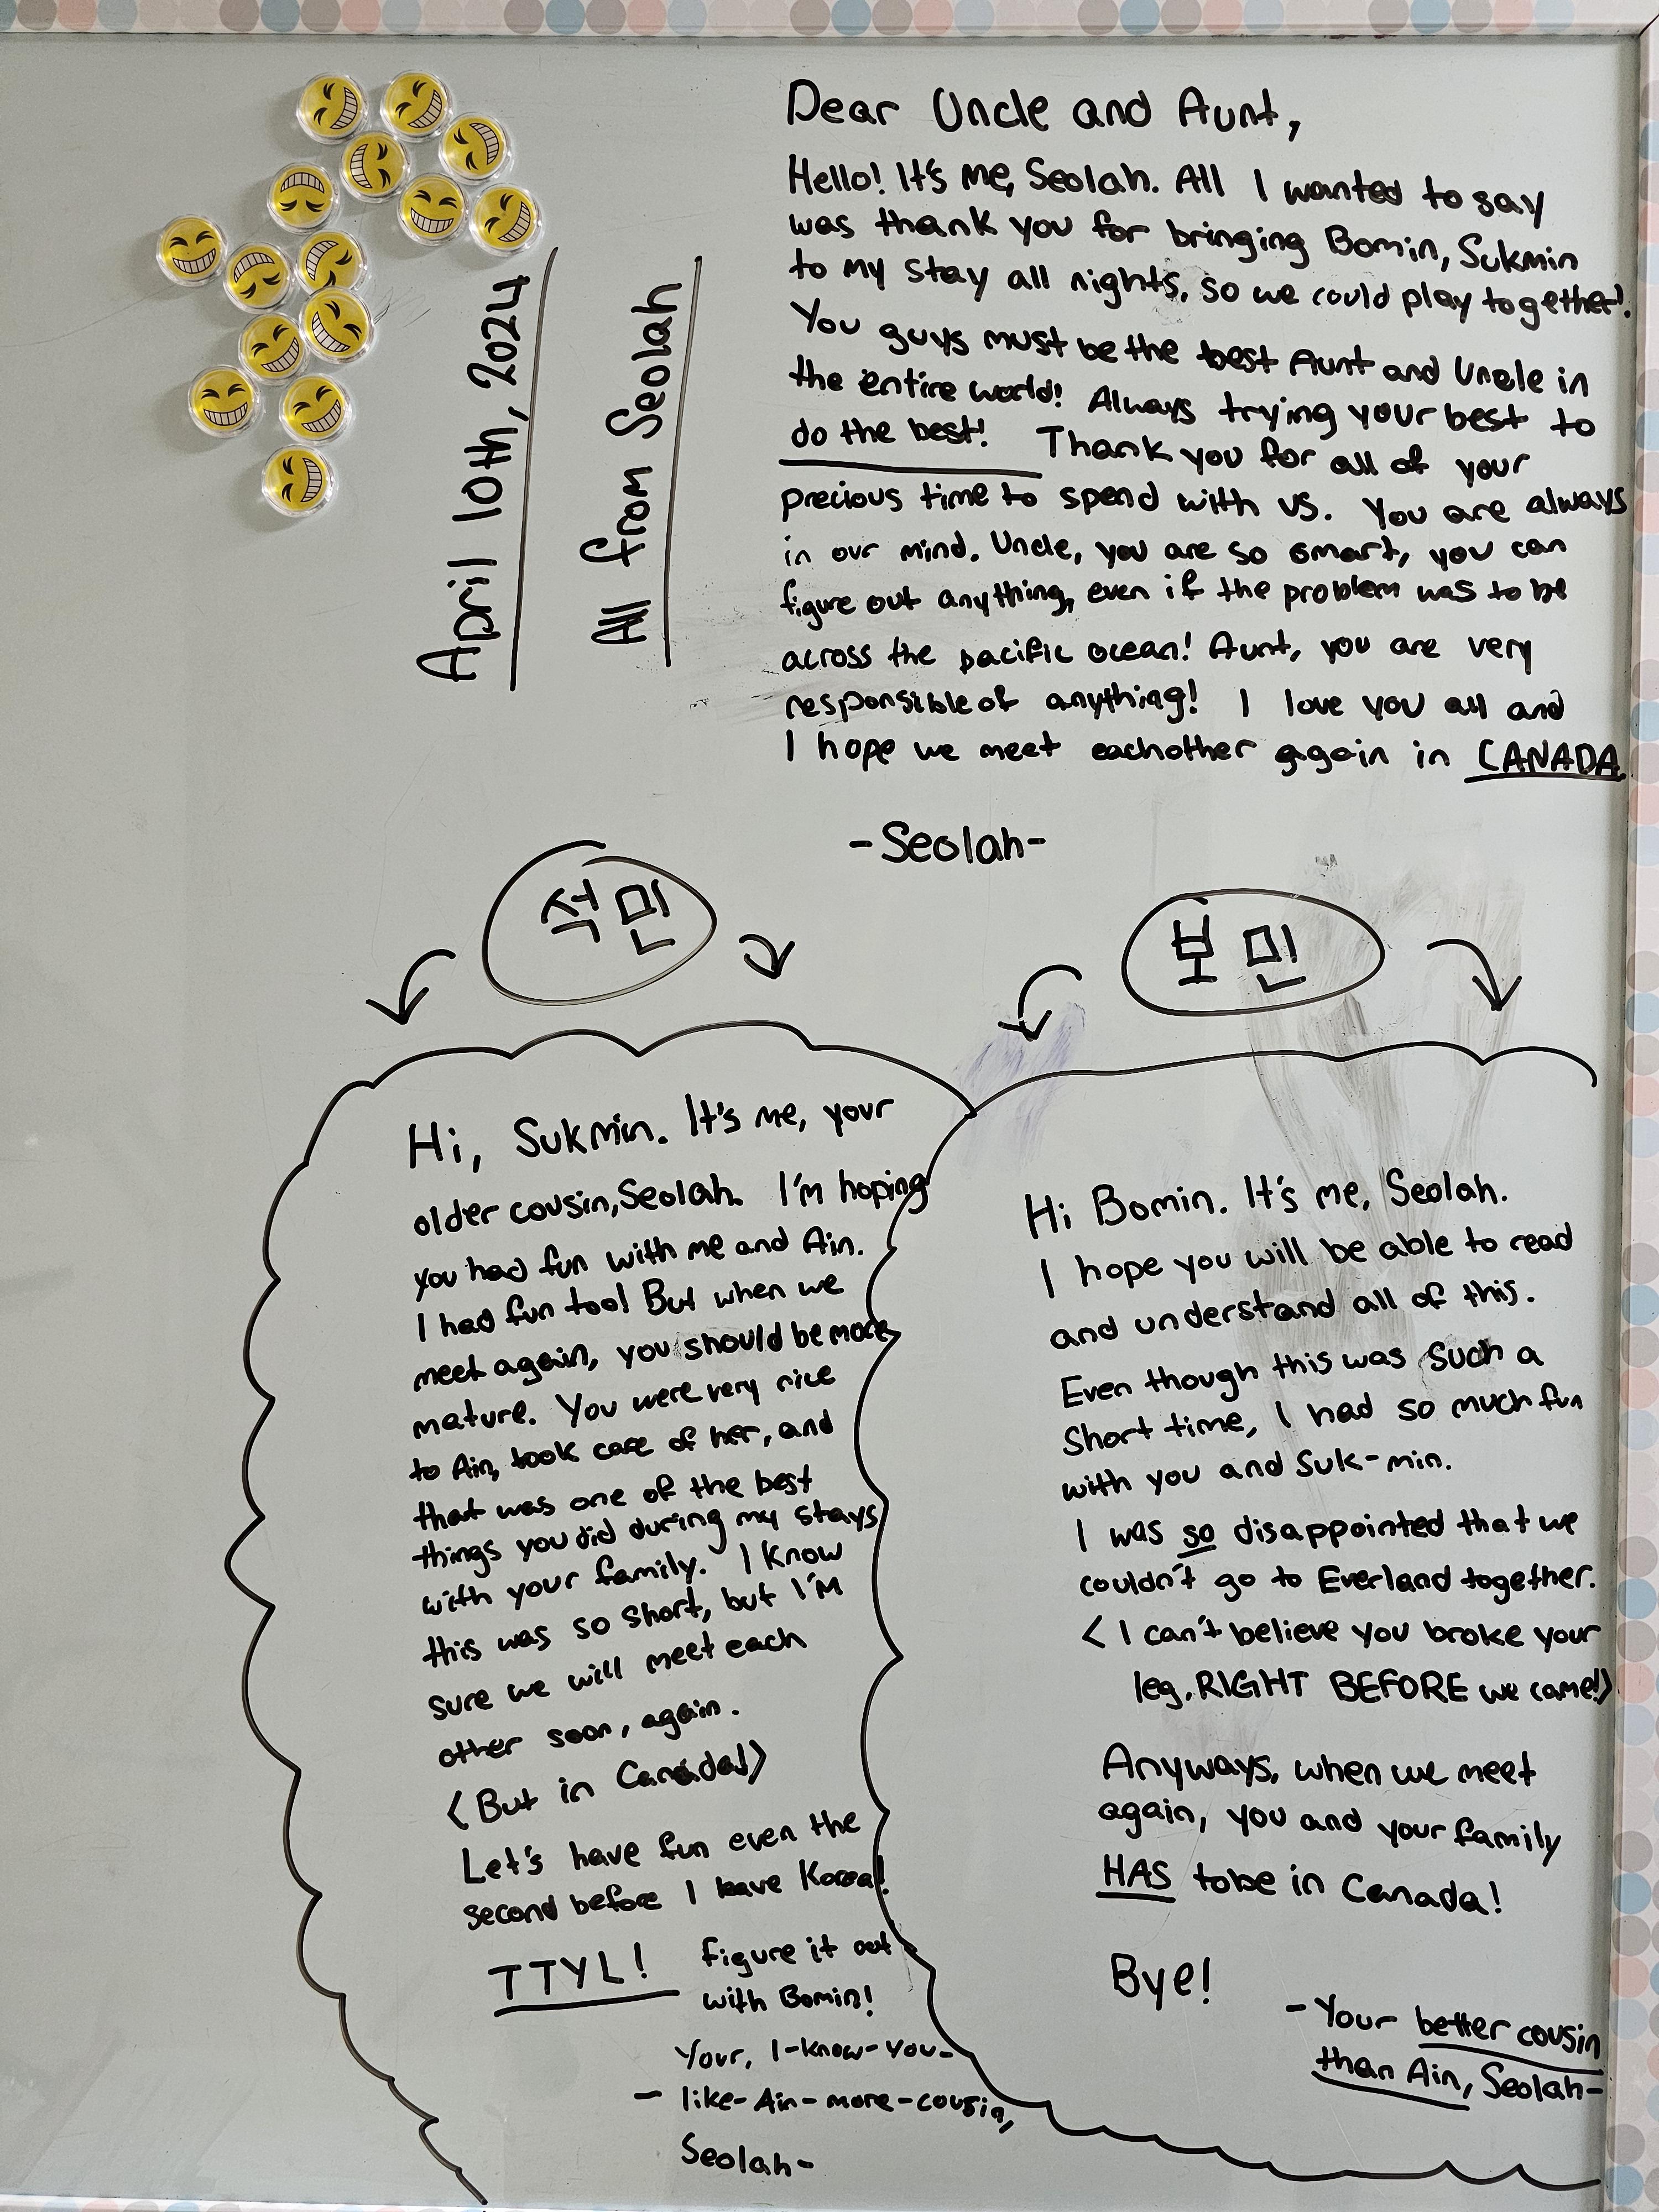 April 10th, 2024
All from Seolah
Dear Uncle and Aunt,
Hello! It's me, Seolah. All I wanted to say
was thank you for bringing Bomin, Sukmin
to my stay all nights, so we could play together!
You guys must be the best Aunt and Uncle in
the entire world! Always trying your best to
do the best! Thank you for all of your
precious time to spend with us. You are always
in our mind. Uncle, you are so smart, you can
figure out anything, even if the problem was to be
across the pacific ocean! Aunt, you are very
responsible of anything! I love you all and
I hope we meet eachother again in CANADA.
-Seolah-
석민
Hi, Sukmin. It's me, your
older cousin, Seolah. I'm hoping
you had fun with me and Ain.
I had fun too! But when we
meet again, you should be more
mature. You were very nice
to Ain, took care of her, and
that was one of the best
things you did during my stays
with your family. I know
this was so short, but I'm
sure we will meet each
other soon, again.
<But in Canada!>
Let's have fun even the
second before I leave Korea!
TTYL! Figure it out
with Bomin!
Your, I-know-you-
- like-Ain-more-cousin,
Seolah-
보민
Hi Bomin. It's me, Seolah.
I hope you will be able to read
and understand all of this.
Even though this was such a
short time, I had so much fun
with you and Suk-min.
I was so disappointed that we
couldn't go to Everland together.
<I can't believe you broke your
leg, RIGHT BEFORE we came!>
Anyways, when we meet
again, you and your family
HAS to be in Canada!
Bye!
- Your better cousin
than Ain, Seolah-